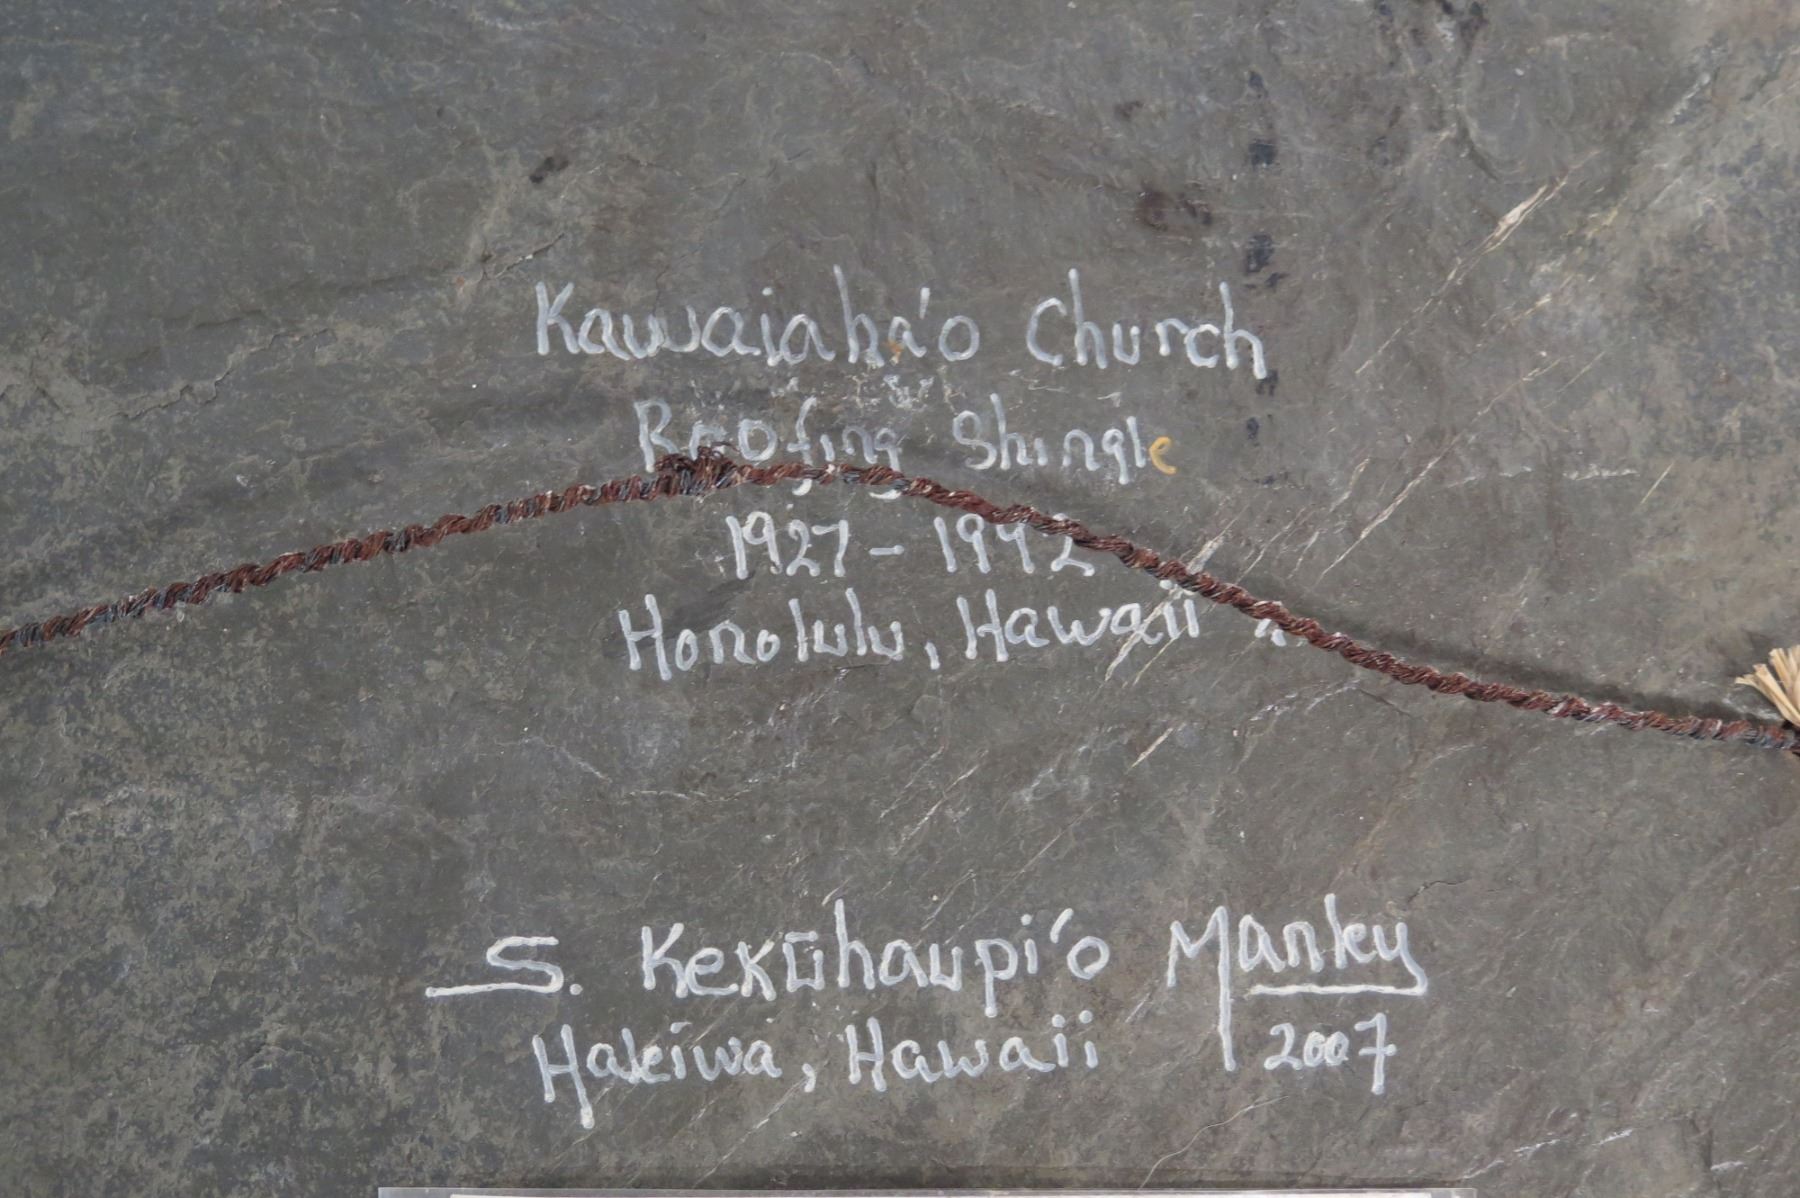 Kawaiaha'o Church
Roofing Shingle
1927 - 1942
Honolulu, Hawaii
S. Kekūhaupi'o Manley
Haleiwa, Hawaii 2007